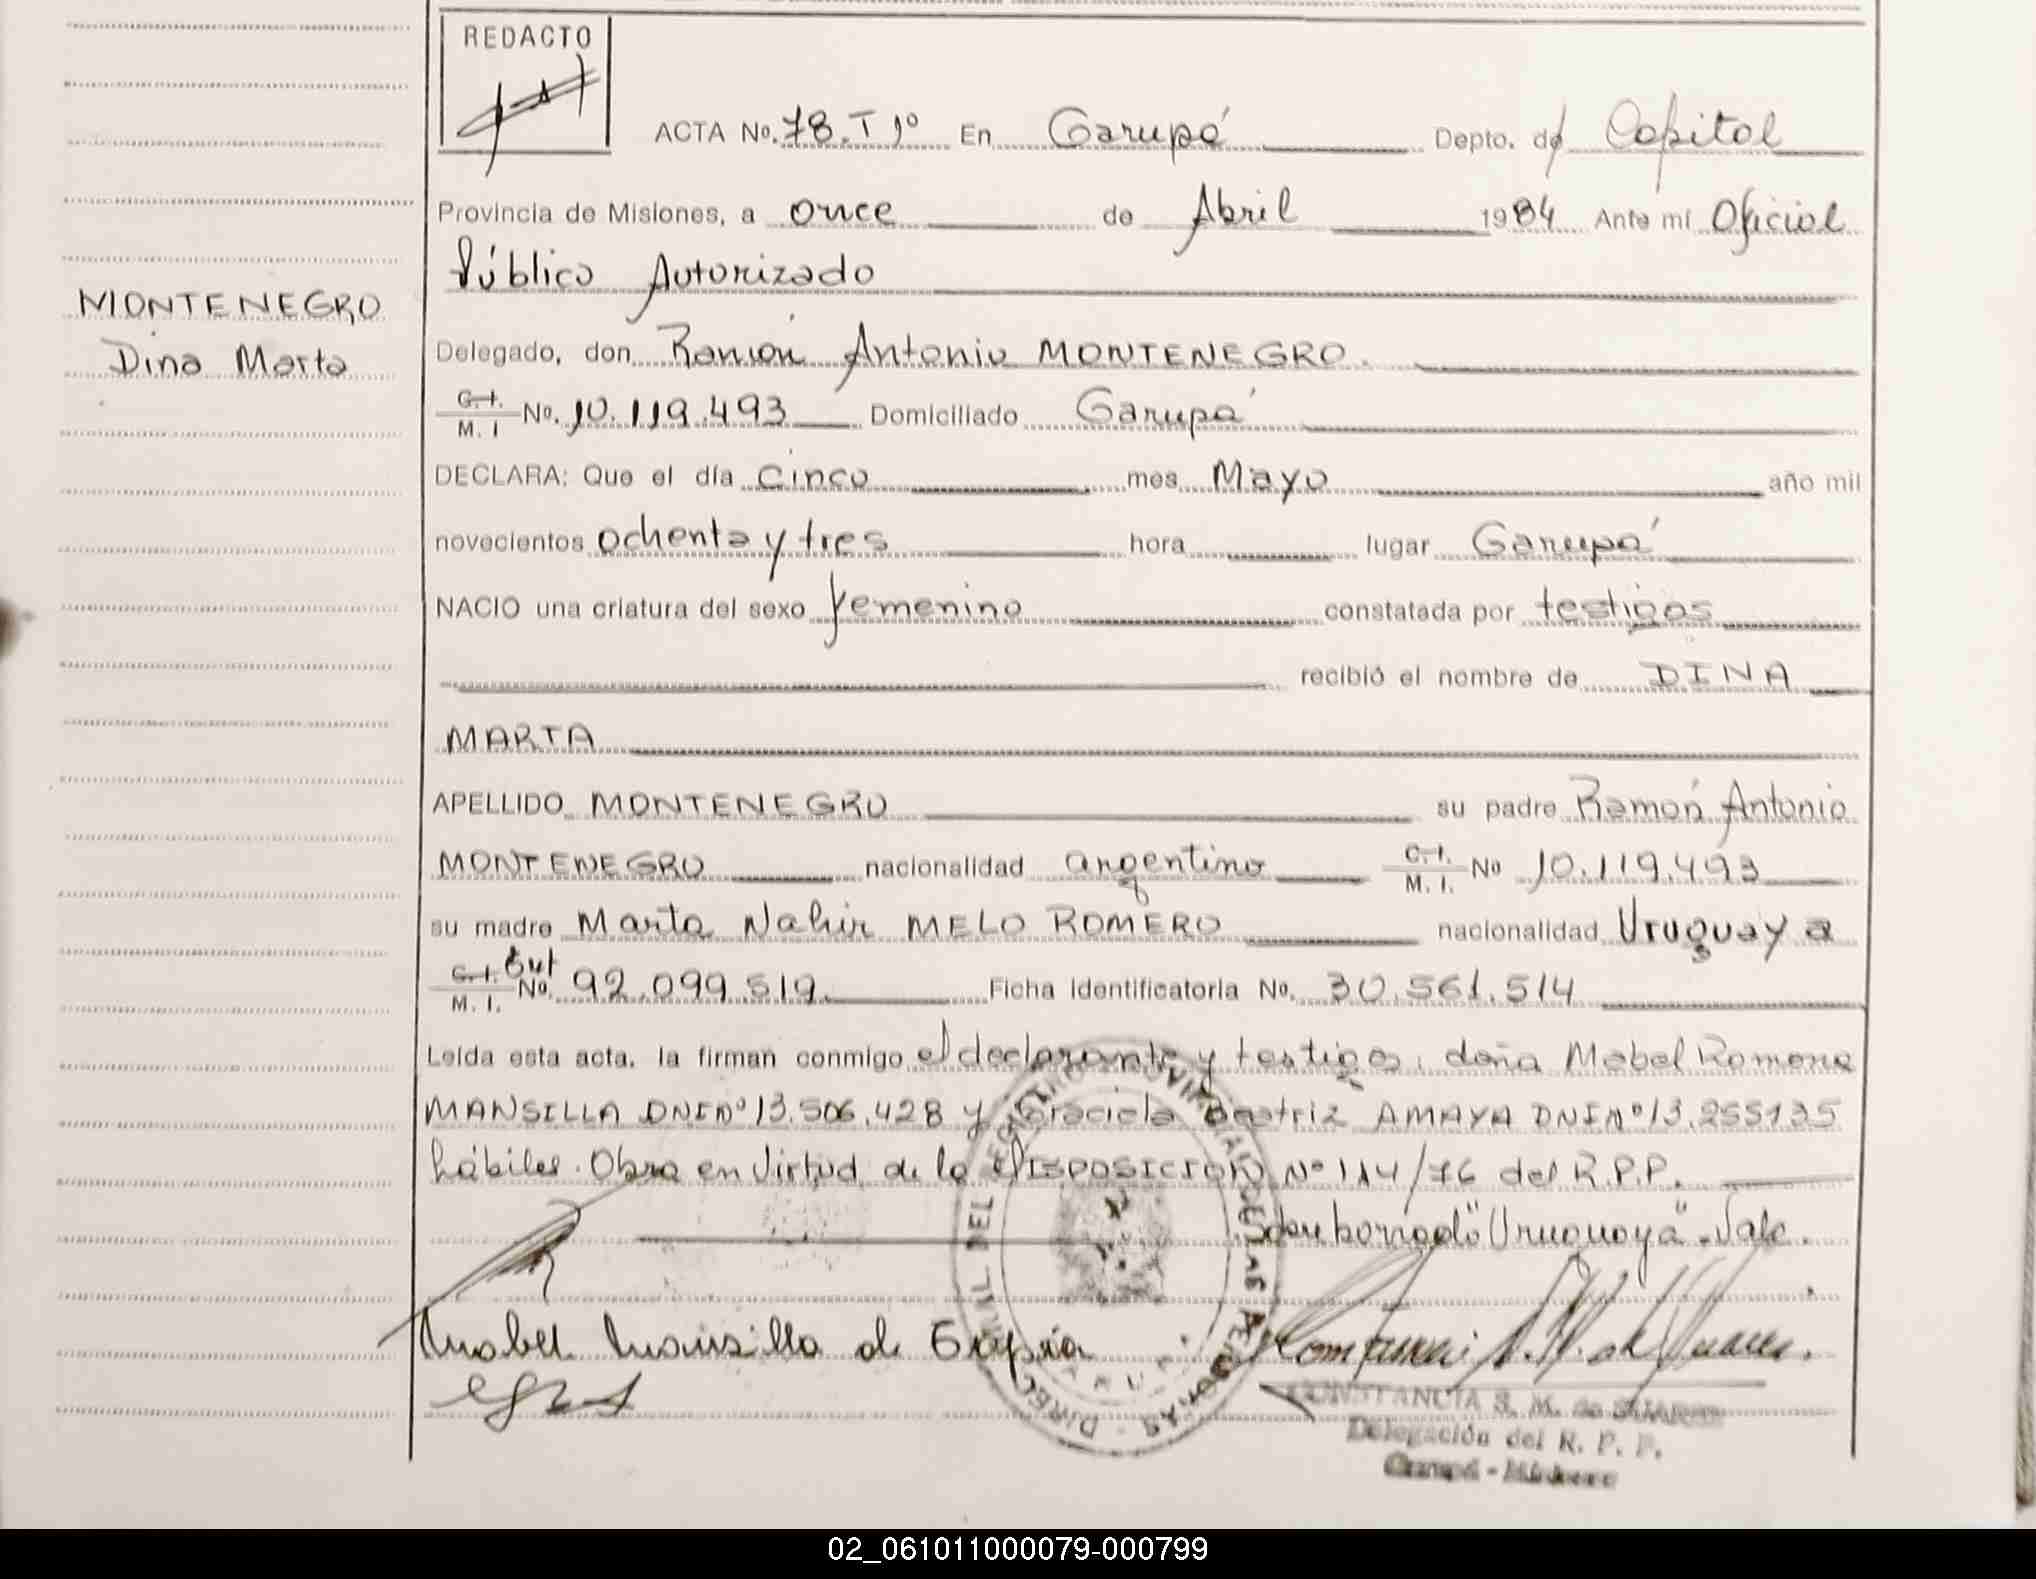 REDACTO
ACTA No. 78.T 1º En Garupá Depto. de Capital
Provincia de Misiones, a once de Abril 1984 Ante mí Oficial
Público Autorizado
MONTENEGRO
Dina Marta
Delegado, don Ramón Antonio MONTENEGRO.
C.I.
M. I No. 10.119.493 Domiciliado Garupá
DECLARA: Que el día Cinco mes Mayo año mil
novecientos ochenta y tres hora lugar Garupá
NACIO una criatura del sexo femenino constatada por testigos
recibió el nombre de DINA
MARTA
APELLIDO MONTENEGRO su padre Ramón Antonio
MONTENEGRO nacionalidad argentino C.I. M. I. No 10.119.493
su madre Marta Nahir MELO ROMERO nacionalidad Uruguaya
C.I. M. I. No. 92.099.519 Ficha identificatoria No. 30.561.514
Leída esta acta, la firman conmigo el declarante y testigos, doña Mabel Romona
MANSILLA DNI Nº 13.506.428 y Graciela Beatriz AMAYA DNI Nº 13.255135
hábiles. Obra en Virtud de la DISPOSICION Nº 114/76 del R.P.P.
Sobreborrado "Uruguaya". Vale.
Mabel Mansilla de
CONSTANCIA S. M. de SUAREZ
Delegación del R. P. P.
Garupá - Misiones
02_061011000079-000799